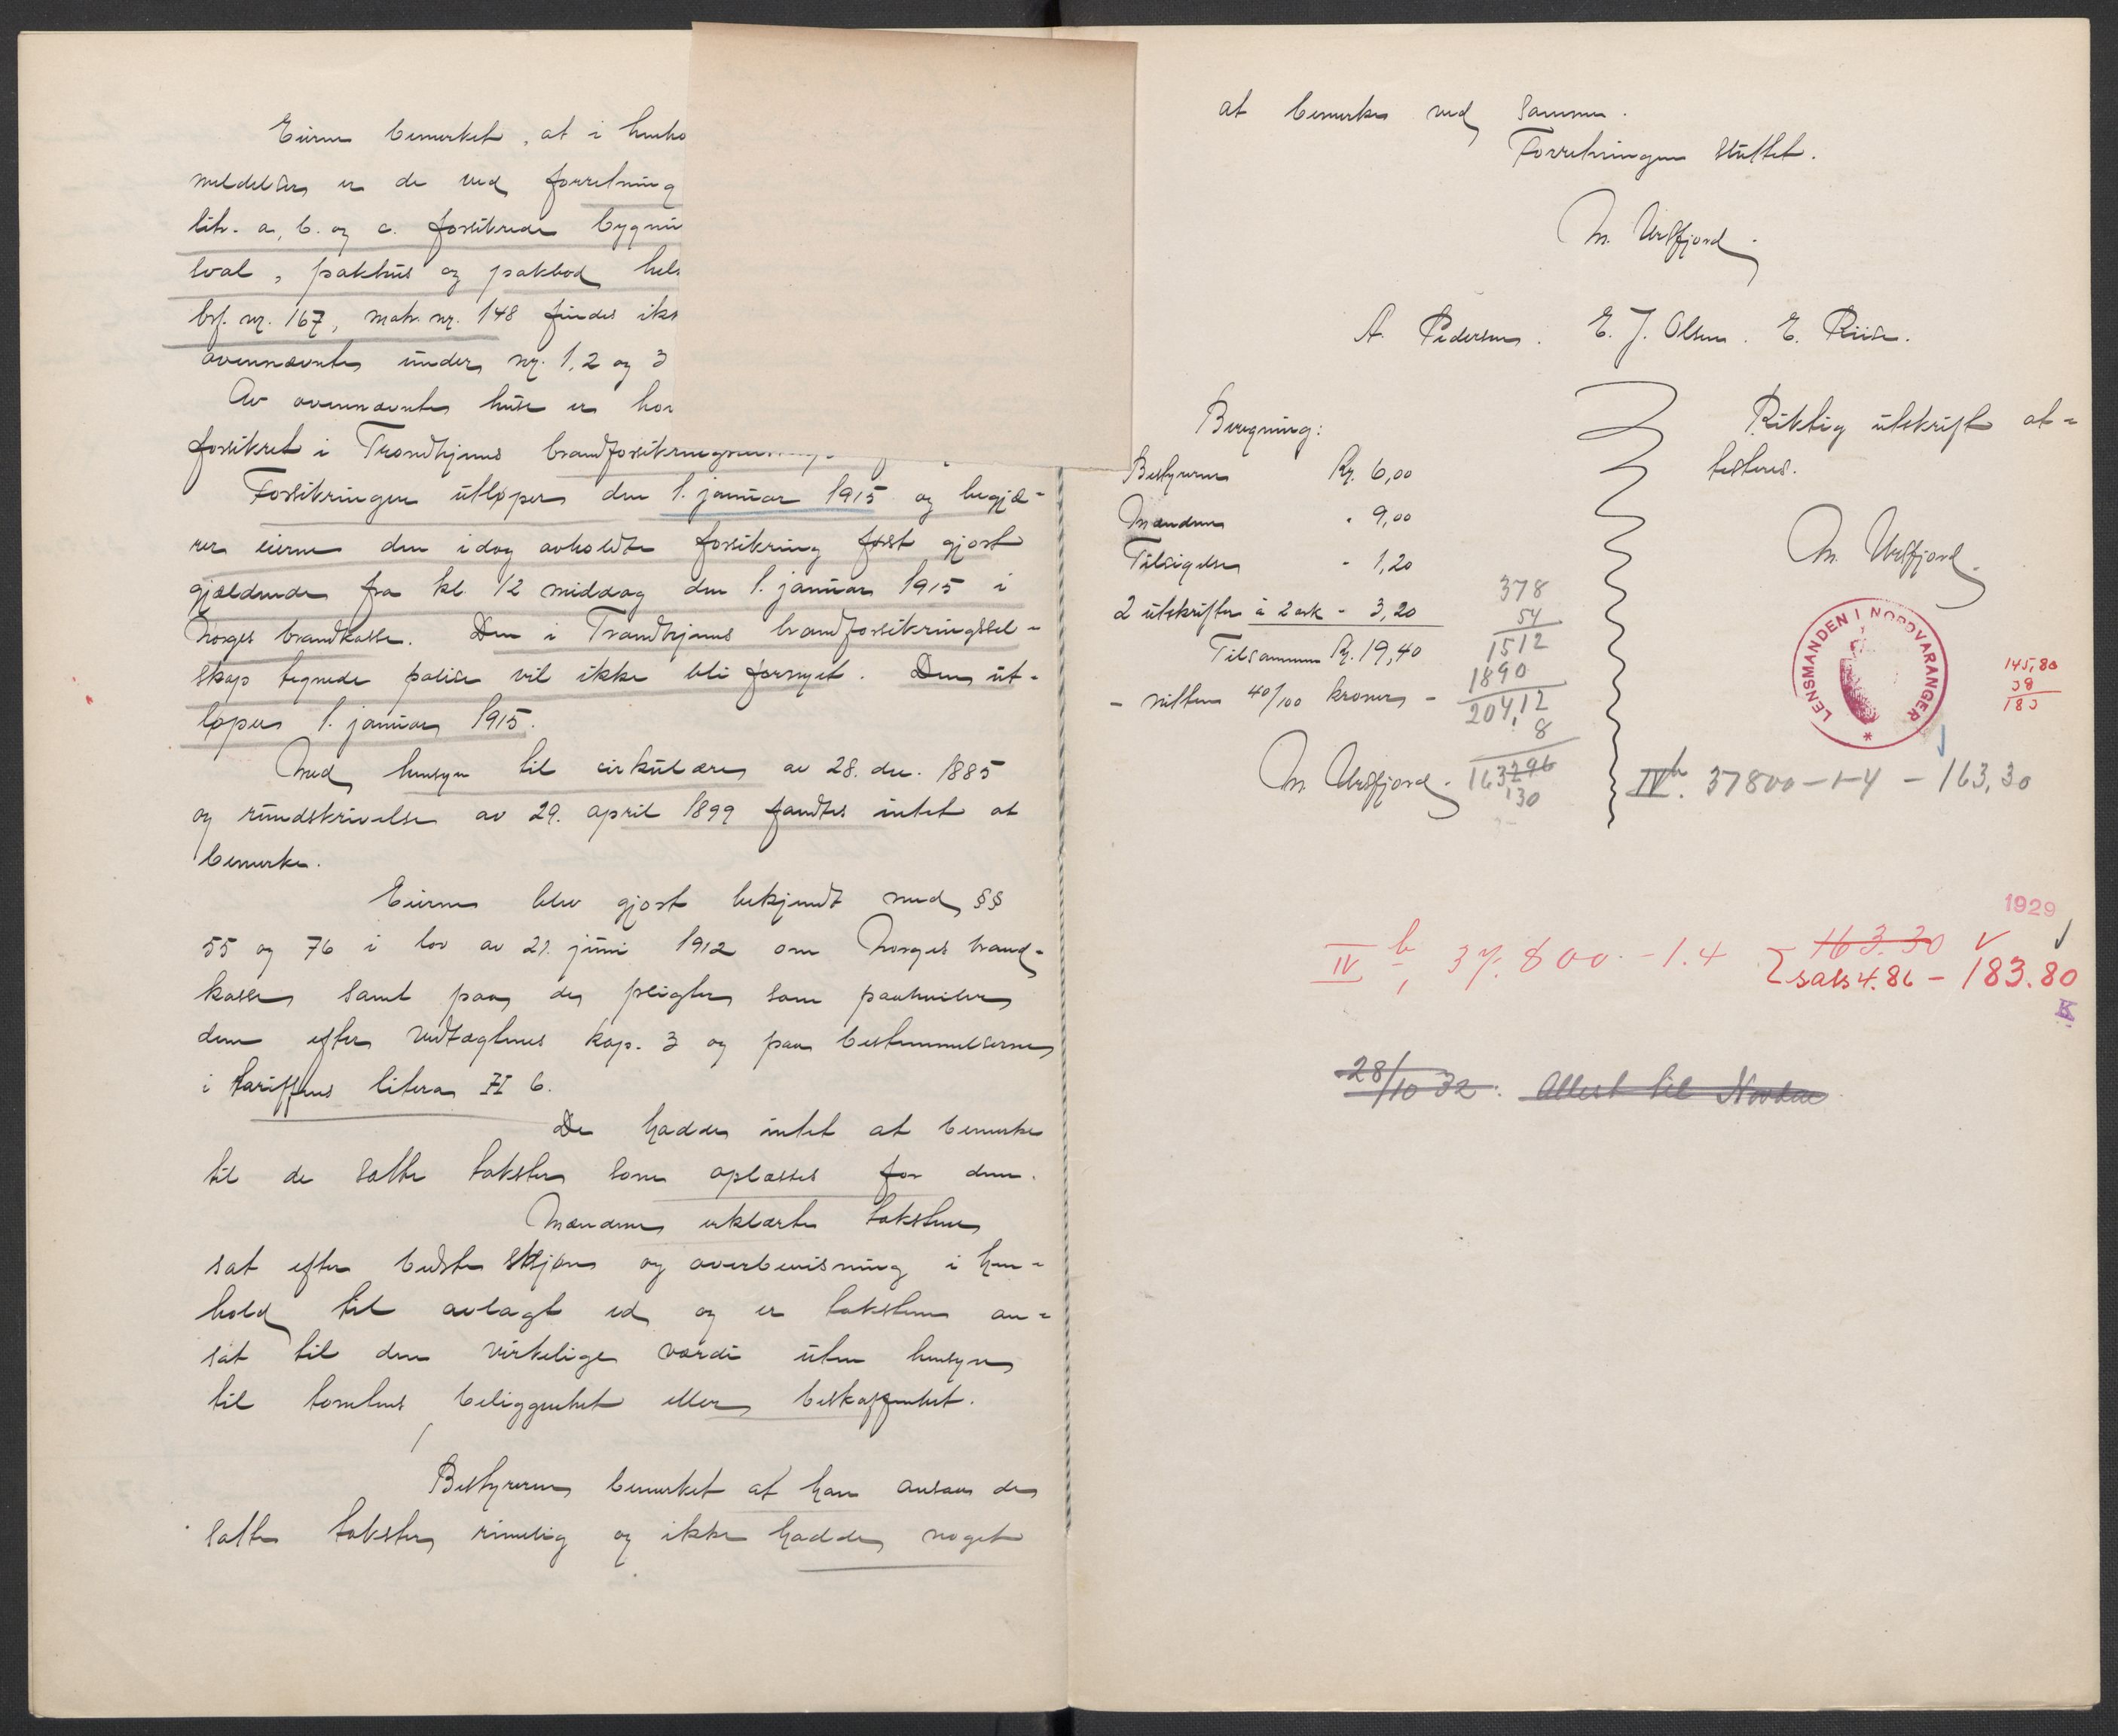 Eierne bemerket, at i henho
meldelsen er de ved forretning
litr. a, b. og c. forsikrede bygnin
sval, pakhus og pakbod
brf. nr. 167, matr. nr. 148 findes ikk
ovennævnte under nr. 1, 2 og 3
Av ovennævnte huse er hov
forsikret i Trondhjems
Forsikringen utløper den 1. januar 1915 og begjæ-
rer eierne den idag avholdte forsikring først gjort
gjældende fra kl. 12 middag den 1. januar 1915 i
Norges brandkasse. Den i Trondhjems brandforsikringssel-
skap tegnede polise vil ikke bli fornyet. Den ut-
løper 1. januar 1915.
Med hensyn til cirkulære av 28. de. 1885
og rundskrivelse av 29. april 1899 fandtes intet at
bemerke.
Eierne blev gjort bekjendt med §§
55 og 76 i lov av 21. juni 1912 om Norges brand-
kasse samt paa de pligter som paahviler
dem efter vedtægternes kap. 3 og paa bestemmelserne
i tariffens litera H 6.
De hadde intet at bemerke
til de satte takster som oplæstes for dem.
Mændene erklærte taksterne
sat efter bedste skjøn og overbevisning i hen-
hold til avlagt ed og er taksterne an-
sat til den virkelige værdi uten hensyn
til tomtens beliggenhet eller beskaffenhet.
Bestyreren bemerket at han ansaa de
satte takster rimelig og ikke hadde noget
at bemerke ved samme.
Forretningen sluttet.
M. Ursfjord.
A. Pedersen. E. J. Olsen. E. Riise.
Beregning:
Bestyreren Kr. 6,00
Mændene " 9,00
Tilsigelse - 1,20
2 utskrifter à 2 ark - 3,20
Tilsammen Kr. 19,40
- nitten 40/100 kroner -
M. Ursfjord.
378
54
1512
1890
20412
8
163296
130
Riktig utskrift at-
testeres.
M. Ursfjord.
LENSMANDEN I NORDVARANGER *
145,80
38
183
IVb. 37800-1-4 - 163,30
1929
IV b, 37.800.-1.4 163.30
sats 4.86 - 183.80
K
28/10 32: Attest til Norden